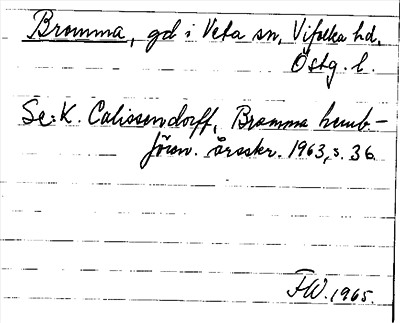 Bromma, gd i Veta sn, Vifolka hd,
Östg. l.
Se: K. Calissendorff, Bromma hemb-
fören. årsskr. 1963, s. 36.
FW. 1965.